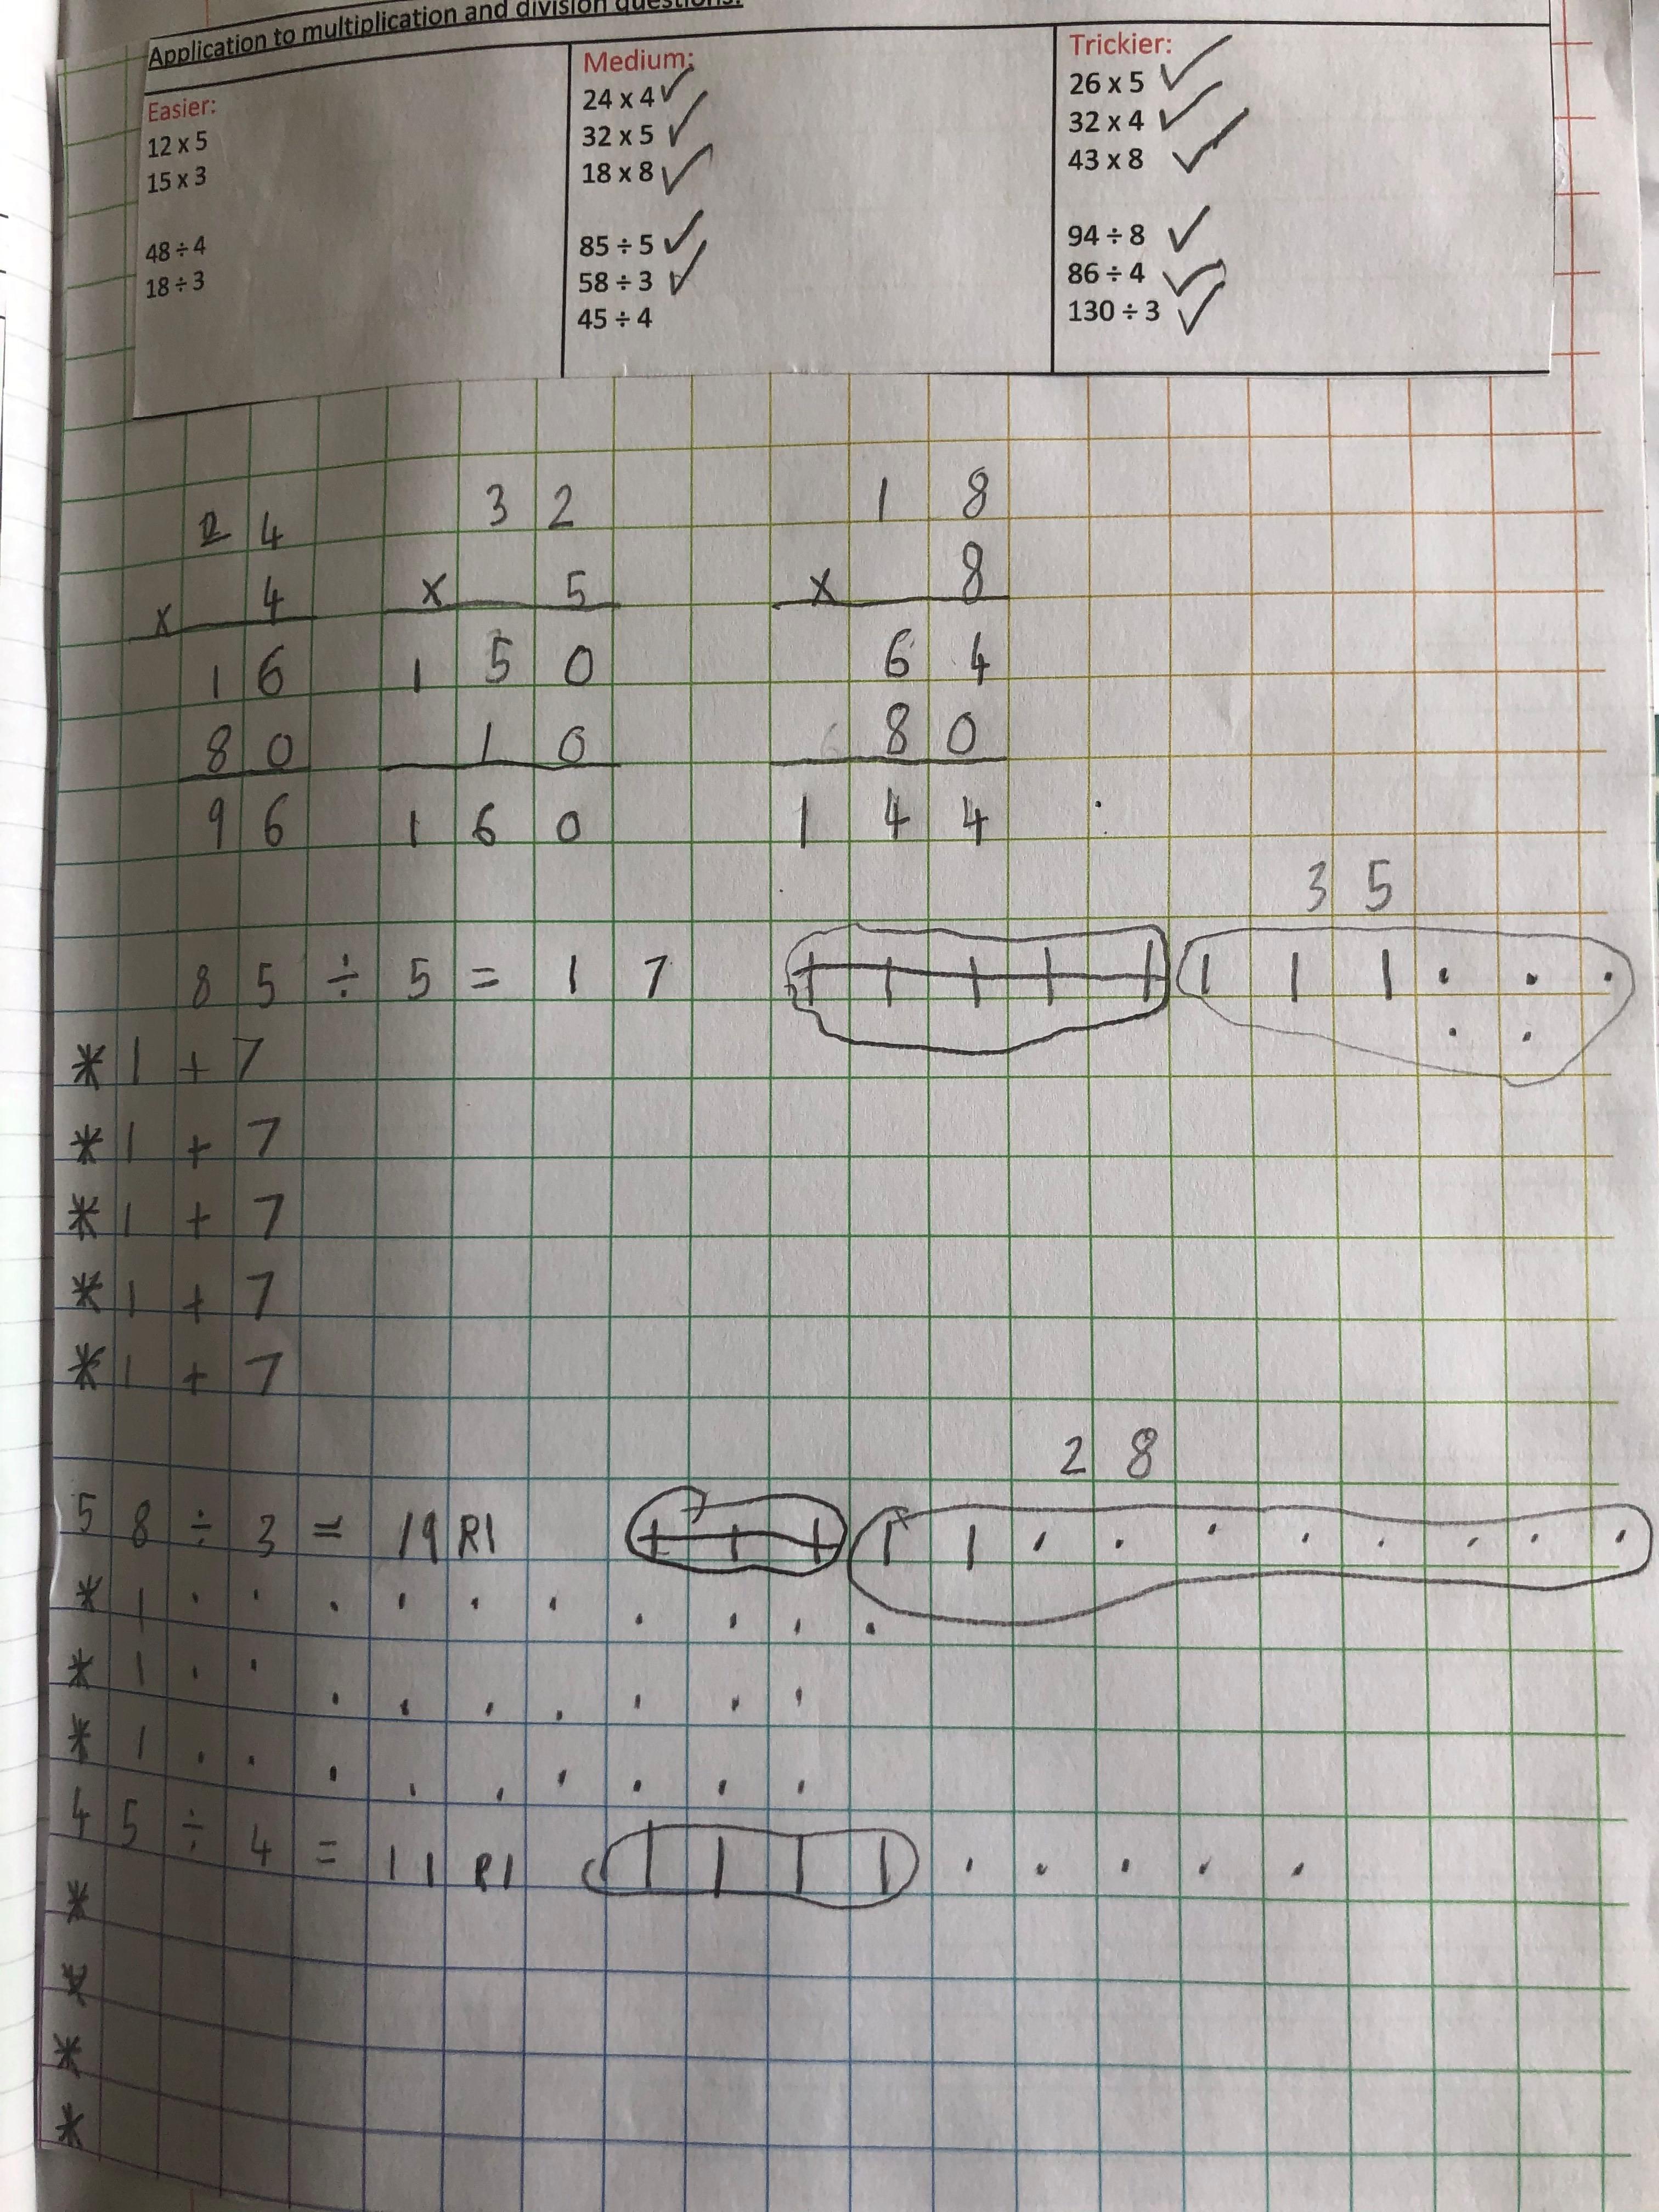 Application to multiplication and division questions:
Easier:
12 x 5
15 x 3
48 ÷ 4
18 ÷ 3
Medium:
24 x 4 ✓
32 x 5 ✓
18 x 8 ✓
85 ÷ 5 ✓
58 ÷ 3 ✓
45 ÷ 4
Trickier:
26 x 5 ✓
32 x 4 ✓
43 x 8 ✓
94 ÷ 8 ✓
86 ÷ 4 ✓
130 ÷ 3 ✓
24
x 4
16
80
96
32
x 5
150
10
160
18
x 8
64
80
144
35
85 ÷ 5 = 17
* 1 + 7
* 1 + 7
* 1 + 7
* 1 + 7
* 1 + 7
28
58 ÷ 3 = 19 R1
* 1 . . . . . . . . . .
* 1 . . . . . . . . .
* 1 . . . . . . . . .
45 ÷ 4 = 11 R1
*
*
*
*